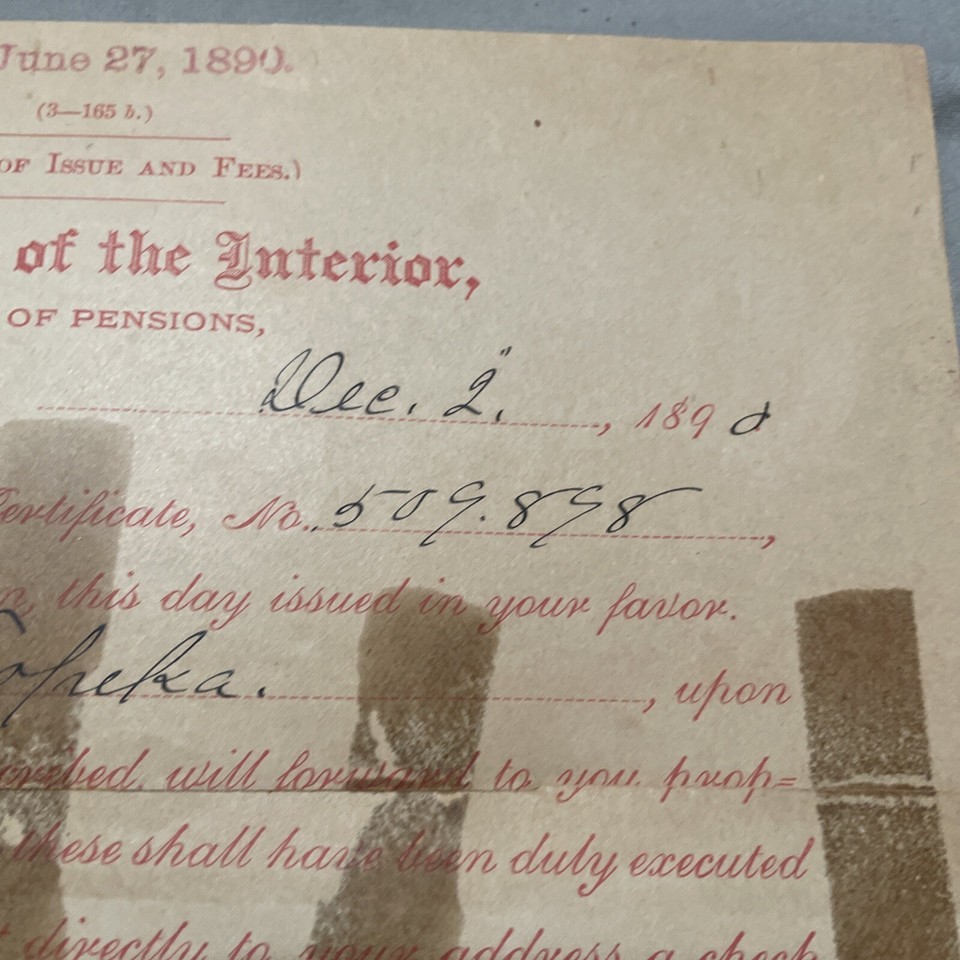 June 27, 1890.
(3—165 b.)
OF ISSUE AND FEES.)
of the Interior,
OF PENSIONS,
Dec. 2", 1890
Certificate, No. 509.898,
this day issued in your favor.
Topeka. , upon
will forward to you prop=
these shall have been duly executed
directly to your address a check